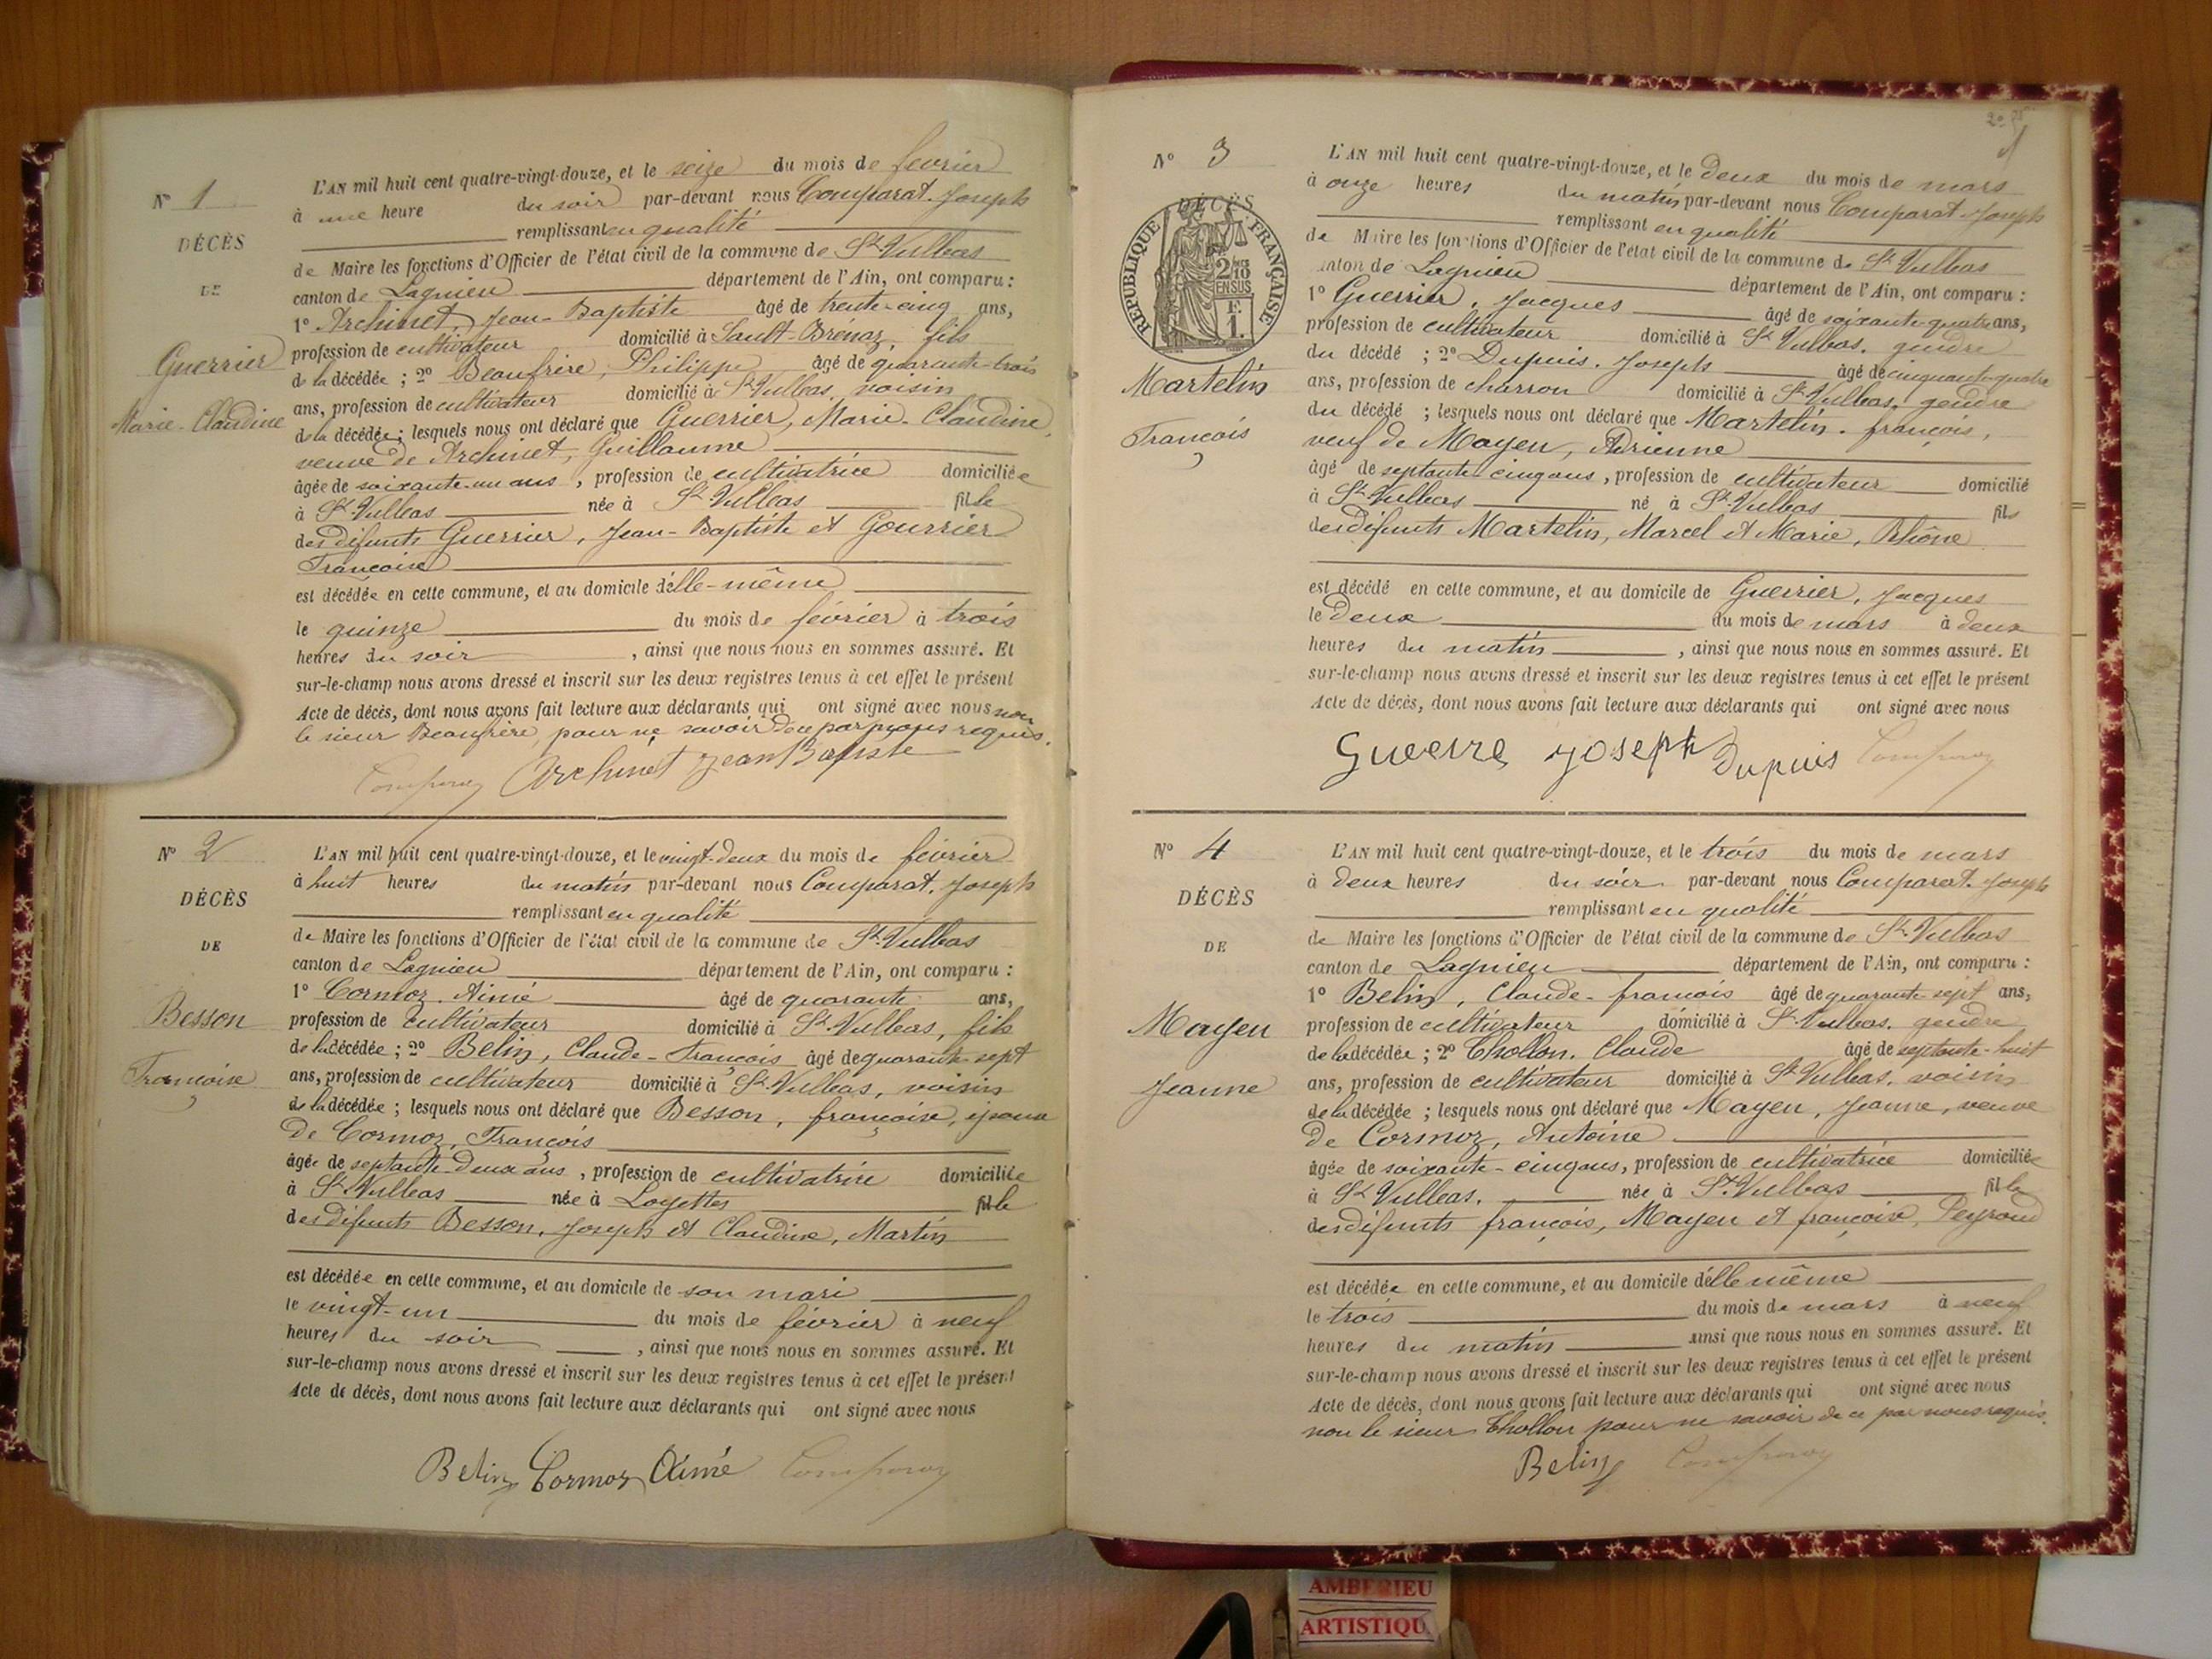 N° 1
DÉCÈS
DE
Guerrier
Marie-Claudine
L'AN mil huit cent quatre-vingt-douze, et le seize du mois de février
à une heure du soir par-devant nous Comparat. Joseph
remplissant en qualité
de Maire les fonctions d'Officier de l'état civil de la commune de St Vulbas
canton de Lagnieu département de l'Ain, ont comparu :
1° Archinet, Jean-Baptiste âgé de trente-cinq ans,
profession de cultivateur domicilié à Sault-Brénaz, fils
de la décédée ; 2° Beaufrère, Philippe âgé de quarante-trois
ans, profession de cultivateur domicilié à St Vulbas, voisin
de la décédée ; lesquels nous ont déclaré que Guerrier, Marie-Claudine,
veuve de Archinet, Guillaume
âgée de soixante-un ans , profession de cultivatrice domiciliée
à St Vulbas née à St Vulbas fille
des défunts Guerrier, Jean-Baptiste et Gourrier
Françoise
est décédée en cette commune, et au domicile d'elle-même
le quinze du mois de février à trois
heures du soir , ainsi que nous nous en sommes assuré. Et
sur-le-champ nous avons dressé et inscrit sur les deux registres tenus à cet effet le présent
Acte de décès, dont nous avons fait lecture aux déclarants qui ont signé avec nous non
le sieur Beaufrère, pour ne savoir de ce par nous requis.
Archinet Jean Baptiste
N° 2
DÉCÈS
DE
Besson
Françoise
L'AN mil huit cent quatre-vingt-douze, et le vingt-deux du mois de février
à huit heures du matin par-devant nous Comparat. Joseph
remplissant en qualité
de Maire les fonctions d'Officier de l'état civil de la commune de St Vulbas
canton de Lagnieu département de l'Ain, ont comparu :
1° Cormoz. Aimé âgé de quarante ans,
profession de cultivateur domicilié à St Vulbas, fils
de la décédée ; 2° Belin, Claude-François âgé de quarante-sept
ans, profession de cultivateur domicilié à St Vulbas, voisin
de la décédée ; lesquels nous ont déclaré que Besson, françoise, épouse
de Cormoz, François
âgée de septante-deux ans , profession de cultivatrice domiciliée
à St Vulbas née à Loyettes fille
des défunts Besson, Joseph et Claudine, Martin
est décédée en cette commune, et au domicile de son mari
le vingt-un du mois de février à neuf
heures du soir , ainsi que nous nous en sommes assuré. Et
sur-le-champ nous avons dressé et inscrit sur les deux registres tenus à cet effet le présent
Acte de décès, dont nous avons fait lecture aux déclarants qui ont signé avec nous
Belin Cormoz Aimé
N° 3
DÉCÈS
RÉPUBLIQUE FRANÇAISE
2/10 EN SUS
1 F.
Martelin
François
L'AN mil huit cent quatre-vingt-douze, et le deux du mois de mars
à onze heures du matin par-devant nous Comparat. Joseph
remplissant en qualité
de Maire les fonctions d'Officier de l'état civil de la commune de St Vulbas
canton de Lagnieu département de l'Ain, ont comparu :
1° Guerrier, Jacques âgé de soixante-quatre ans,
profession de cultivateur domicilié à St Vulbas. gendre
du décédé ; 2° Dupuis. Joseph âgé de cinquante-quatre
ans, profession de charron domicilié à St Vulbas, gendre
du décédé ; lesquels nous ont déclaré que Martelin. françois,
veuf de Mayen, Adrienne
âgé de septante-cinq ans, profession de cultivateur domicilié
à St Vulbas né à St Vulbas fils
des défunts Martelin, Marcel et Marie, Rhône
est décédé en cette commune, et au domicile de Guerrier, Jacques
le deux du mois de mars à deux
heures du matin , ainsi que nous nous en sommes assuré. Et
sur-le-champ nous avons dressé et inscrit sur les deux registres tenus à cet effet le présent
Acte de décès, dont nous avons fait lecture aux déclarants qui ont signé avec nous
Gueerre Joseph Dupuis
N° 4
DÉCÈS
DE
Mayen
Jeanne
L'AN mil huit cent quatre-vingt-douze, et le trois du mois de mars
à deux heures du soir par-devant nous Comparat. Joseph
remplissant en qualité
de Maire les fonctions d'Officier de l'état civil de la commune de St Vulbas
canton de Lagnieu département de l'Ain, ont comparu :
1° Belin, Claude-françois âgé de quarante-sept ans,
profession de cultivateur domicilié à St Vulbas. gendre
de la décédée ; 2° Chollon. Claude âgé de septante-huit
ans, profession de cultivateur domicilié à St Vulbas. voisin
de la décédée ; lesquels nous ont déclaré que Mayen, Jeanne, veuve
de Cormoz, Antoine
âgée de soixante-cinq ans, profession de cultivatrice domiciliée
à St Vulbas. née à St Vulbas fille
des défunts françois, Mayen et françoise, Peyroud
est décédée en cette commune, et au domicile d'elle même
le trois du mois de mars à neuf
heures du matin ainsi que nous nous en sommes assuré. Et
sur-le-champ nous avons dressé et inscrit sur les deux registres tenus à cet effet le présent
Acte de décès, dont nous avons fait lecture aux déclarants qui ont signé avec nous
non le sieur Chollon pour ne savoir de ce par nous requis.
Belin
AMBERIEU
ARTISTIQU